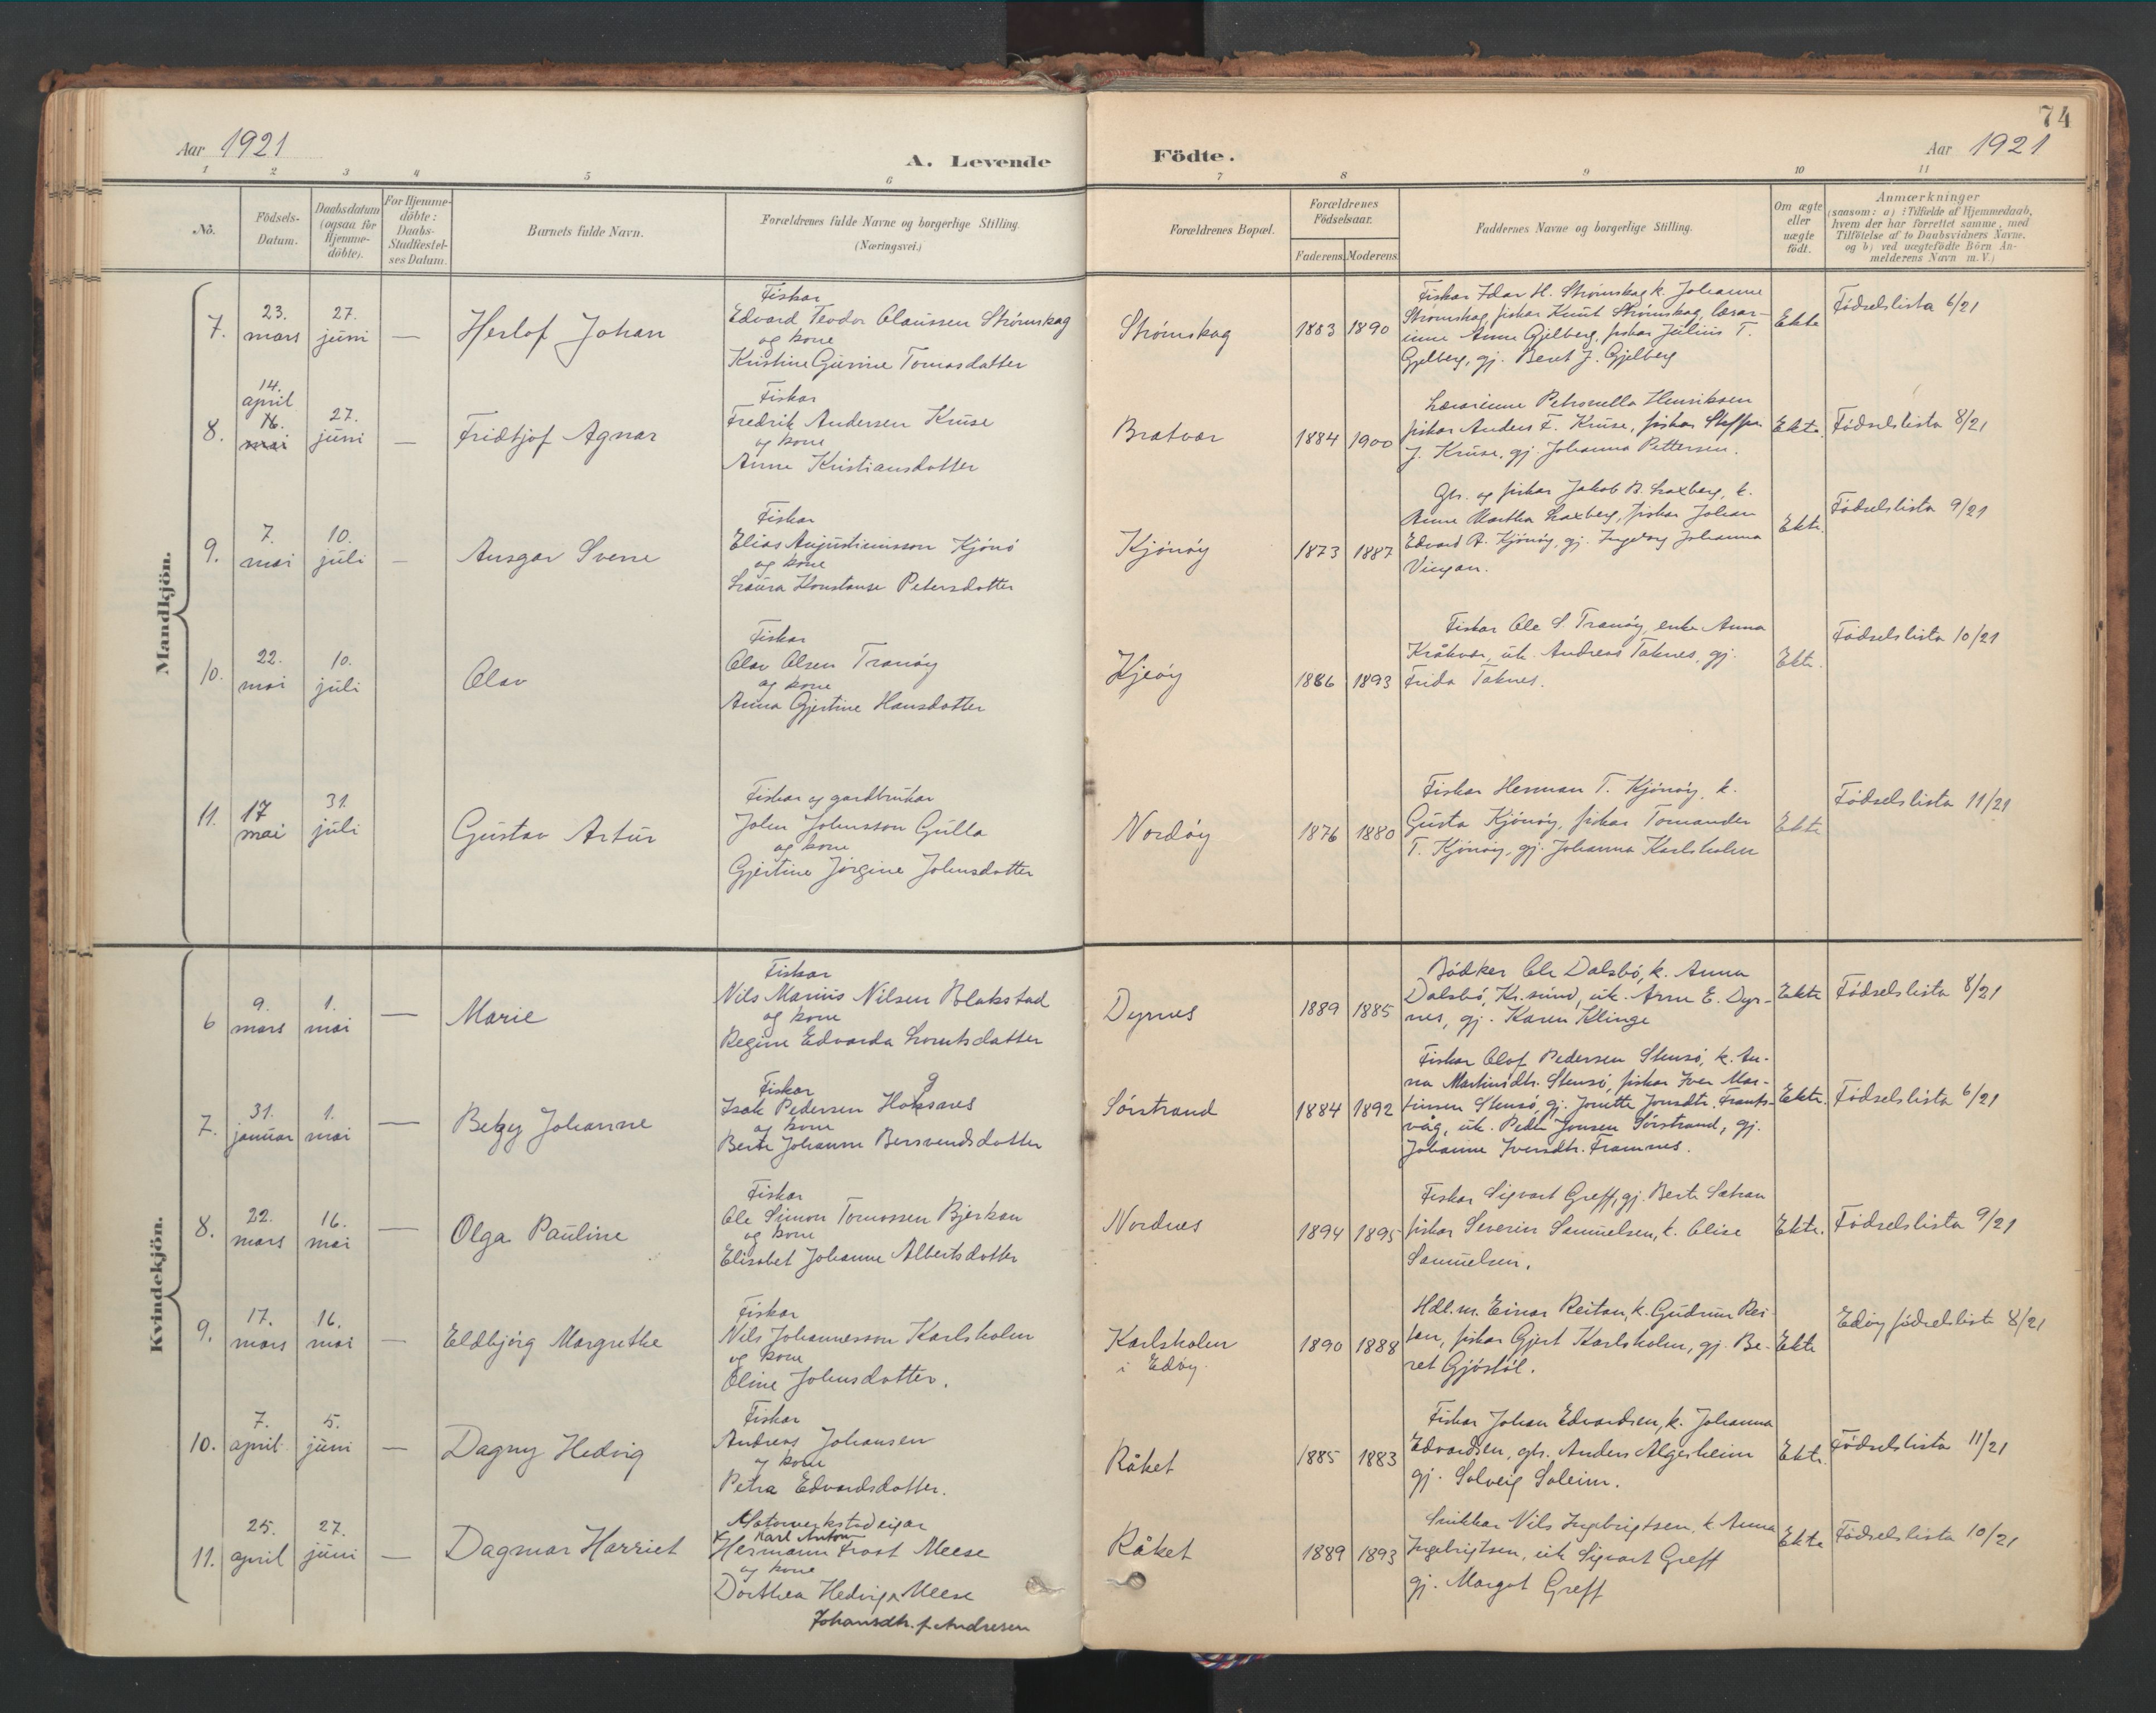 74
Aar 1921
A. Levende
Födte.
Aar 1921
1 2 3 4 5 6 7 8 9 10 11
No.
Födsels-
Datum.
Daabsdatum
(ogsaa for
Hjemme-
döbte).
For Hjemme-
döbte:
Daabs-
Stadfæstel-
ses Datum.
Barnets fulde Navn.
Forældrenes fulde Navne og borgerlige Stilling.
(Næringsvei.)
Forældrenes Bopæl.
Forældrenes
Födselsaar.
Faderens. Moderens.
Faddernes Navne og borgerlige Stilling.
Om ægte
eller
uægte
födt.
Anmærkninger
(saasom: a) i Tilfælde af Hjemmedaab,
hvem der har forrettet samme, med
Tilföielse af to Daabsvidners Navne,
og b) ved uægtefödte Börn An-
melderens Navn m. V.)
Mandkjön.
7.
23.
mars
27.
juni
—
Herlof Johan
Fiskar
Edvard Teodor Claussen Strömskag
og kone
Kristine Gurine Tomasdatter
Strömskag
1883 1890
Fiskar Idar H. Strömskag k. Johanne
Strömskag, fiskar Knut Strömskag, lærar-
inne Anne Gjelberg, fiskar Julius T.
Gjelberg, gj. Beret J. Gjelberg
Ekte
Fødselslista 6/21
8.
14.
april
16.
mai
27.
juni
—
Fridtjof Agnar
Fiskar
Fredrik Andersen Kruse
og kone
Anne Kristiansdatter
Bratvær
1884 1900
Lærarinne Petronella Henriksen
fiskar Anders F. Kruse, fiskar Steffen
J. Kruse, gj. Johanna Pettersen.
Ekte.
Fødselslista 8/21
9.
7.
mai
10.
juli
—
Ansgar Sverre
Fiskar
Elias Augustinusson Kjönö
og kone
Laura Konstanse Petersdatter
Kjönöy
1873 1887
Gbr. og fiskar Jakob B. Laxberg, k.
Anne Martha Laxberg, fiskar Johan
Edvard A. Kjönöy, gj. Ingeborg Johanna
Vingan.
Ekte.
Fødselslista 9/21
10.
22.
mai
10.
juli
Olav
Fiskar
Olav Olsen Tranöy
og kone
Anna Gjertine Hansdatter
Kjeöy
1886 1893
Fiskar Ole S. Tranöy, enke Anna
Kråkvær, uk. Andreas Taknes, gj.
Frida Taknes.
Ekte.
Fødselslista 10/21
11.
17
mai
31.
juli
Gustav Artur
Fiskar og gardbrukar
John Johnsson Gulla
og kone
Gjertine Jörgine Johnsdatter
Nordöy
1876 1880
Fiskar Herman T. Kjönöy, k.
Gusta Kjönöy, fiskar Tomander
T. Kjönöy, gj. Johanna Karlsholm
Ekte
Fødselslista 11/21
Kvindekjön.
6
9.
mars
1.
mai
—
Marie
Fiskar
Nils Marius Nilsen Blakstad
og kone
Regine Edvarda Lorntsdatter
Dyrnes
1889 1885
Bödker Ole Dalsbö, k. Anna
Dalsbö, Kr.sund, uk. Arne E. Dyr-
nes, gj. Karen Klinge
Ekte
Fødselslista 8/21
7.
31.
januar
1.
mai
—
Betzy Johanne
Fiskar
Isak Pedersen Hoksnes
g
og kone
Berte Johanne Bersvendsdatter
Sörstrand
1884 1892
Fiskar Olaf Pedersen Stensö, k. An-
na Martinsdtr. Stensö, fiskar Iver Mar-
tinsen Stensö, gj. Jonette Jonsdtr. Frants-
våg, uk. Peder Jonsen Sörstrand, gj.
Johanne Iversdtr. Framnes.
Ekte.
Fødselslista 6/21
8.
22.
mars
16.
mai
—
Olga Pauline
Fiskar
Ole Simon Tomassen Bjerkan
og kone
Elisabet Johanne Albertsdatter
Nordnes
1894 1895
Fiskar Sigvart Greff, gj. Berte Sætran
fiskar Severin Samuelsen, k. Elise
Samuelsen.
Ekte.
Fødselslista 9/21
9.
17.
mars
16.
mai
—
Eldbjörg Margrethe
Fiskar
Nils Johannesson Karlsholm
og kone
Oline Johnsdatter.
Karlsholm
i Edöy.
1890 1888
Hdl.m. Einar Reitan, k. Gudrun Rei-
tan, fiskar Gjert Karlsholm, gj. Be-
ret Gjöstöl.
Ekte
Edöy fødselsliste 8/21
10.
7.
april
5.
juni
—
Dagny Hedvig
Fiskar
Andreas Johansen
og kone
Petra Edvardsdatter.
Råket
1885 1883
Fiskar Johan Edvardsen, k. Johanna
Edvardsen, gbr. Anders Algesheim
gj. Solveig Soleim.
Ekte.
Fødselslista 11/21
11.
25.
april
27.
juni
—
Dagmar Harriet
Motorverkstadeigar
Karl Anton
Hermann Frost Meese
og kone
Dorthea Hedvig Meese
Johansdtr. f. Andresen
Råket
1889 1893
Snikkar Nils Ingebrigtsen, k. Anna
Ingebrigtsen, uk Sigvart Greff
gj. Margot Greff
Ekte
Fødselslista 10/21